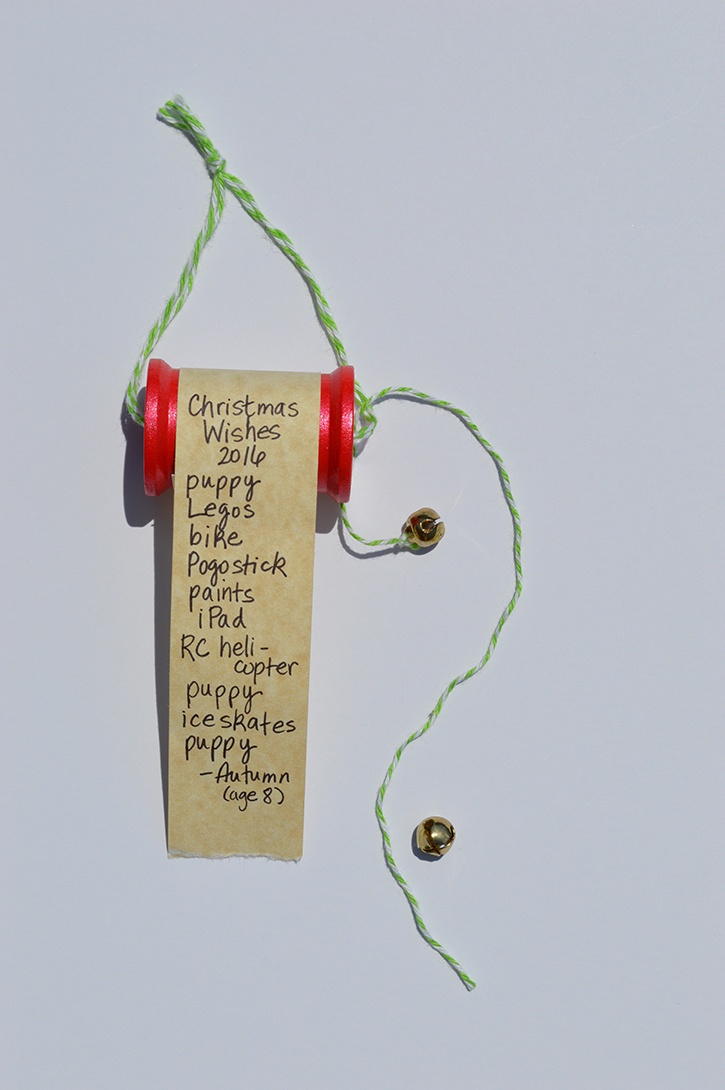 Christmas
Wishes
2016
puppy
Legos
bike
Pogostick
paints
iPad
RC heli-
copter
puppy
ice skates
puppy
-Autumn
(age 8)